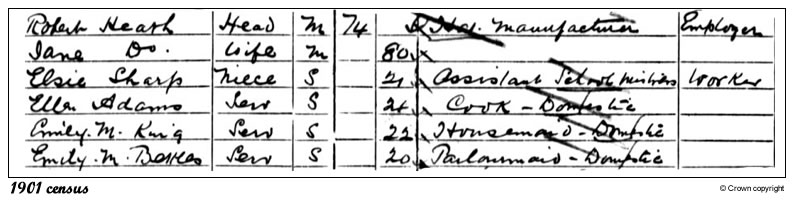 Robert Heath Head M 74 Hat Manufacturer Employer
Jane Do. Wife M 80
Elsie Sharp Niece S 21 Assistant School Mistress Worker
Ellen Adams Serv S 21 Cook - Domestic
Emily. M. King Serv S 22 Housemaid - Domestic
Emily. M. Serv S 20 Parlourmaid - Domestic
1901 census
© Crown copyright